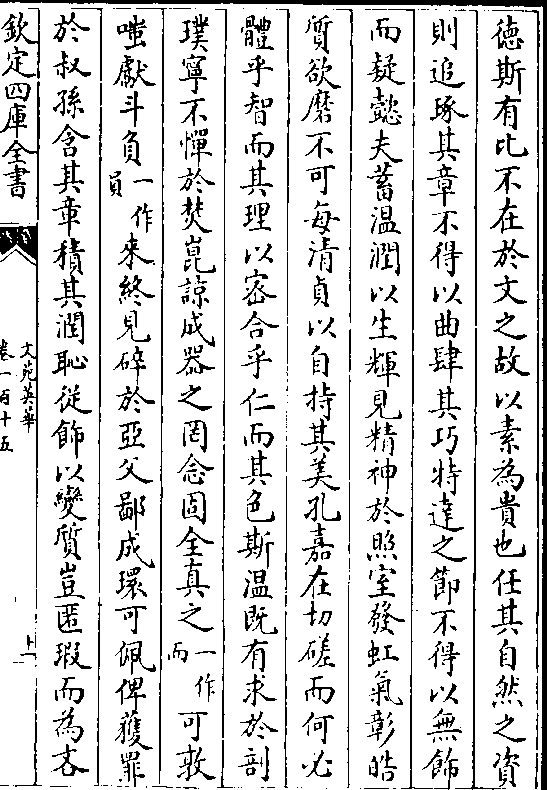 德斯有比不在於文之故以素為貴也任其自然之資
則追琢其章不得以曲肆其巧特達之節不得以無飾
而疑懿夫蓄温潤以生輝見精神於照室發虹氣彰皓
質欲磨不可每清貞以自持其美孔嘉在切磋而何必
體乎智而其理以宻合乎仁而其色斯温既有求於剖
璞寧不憚於焚崑諒成器之罔念固全真之一作而可敦
嗤獻斗負一作員來終見碎於亞父鄙成環可佩俾獲罪
於叔孫含其章積其潤恥從飾以變質豈匿瑕而為吝
欽定四庫全書
文苑英華
卷一百十五